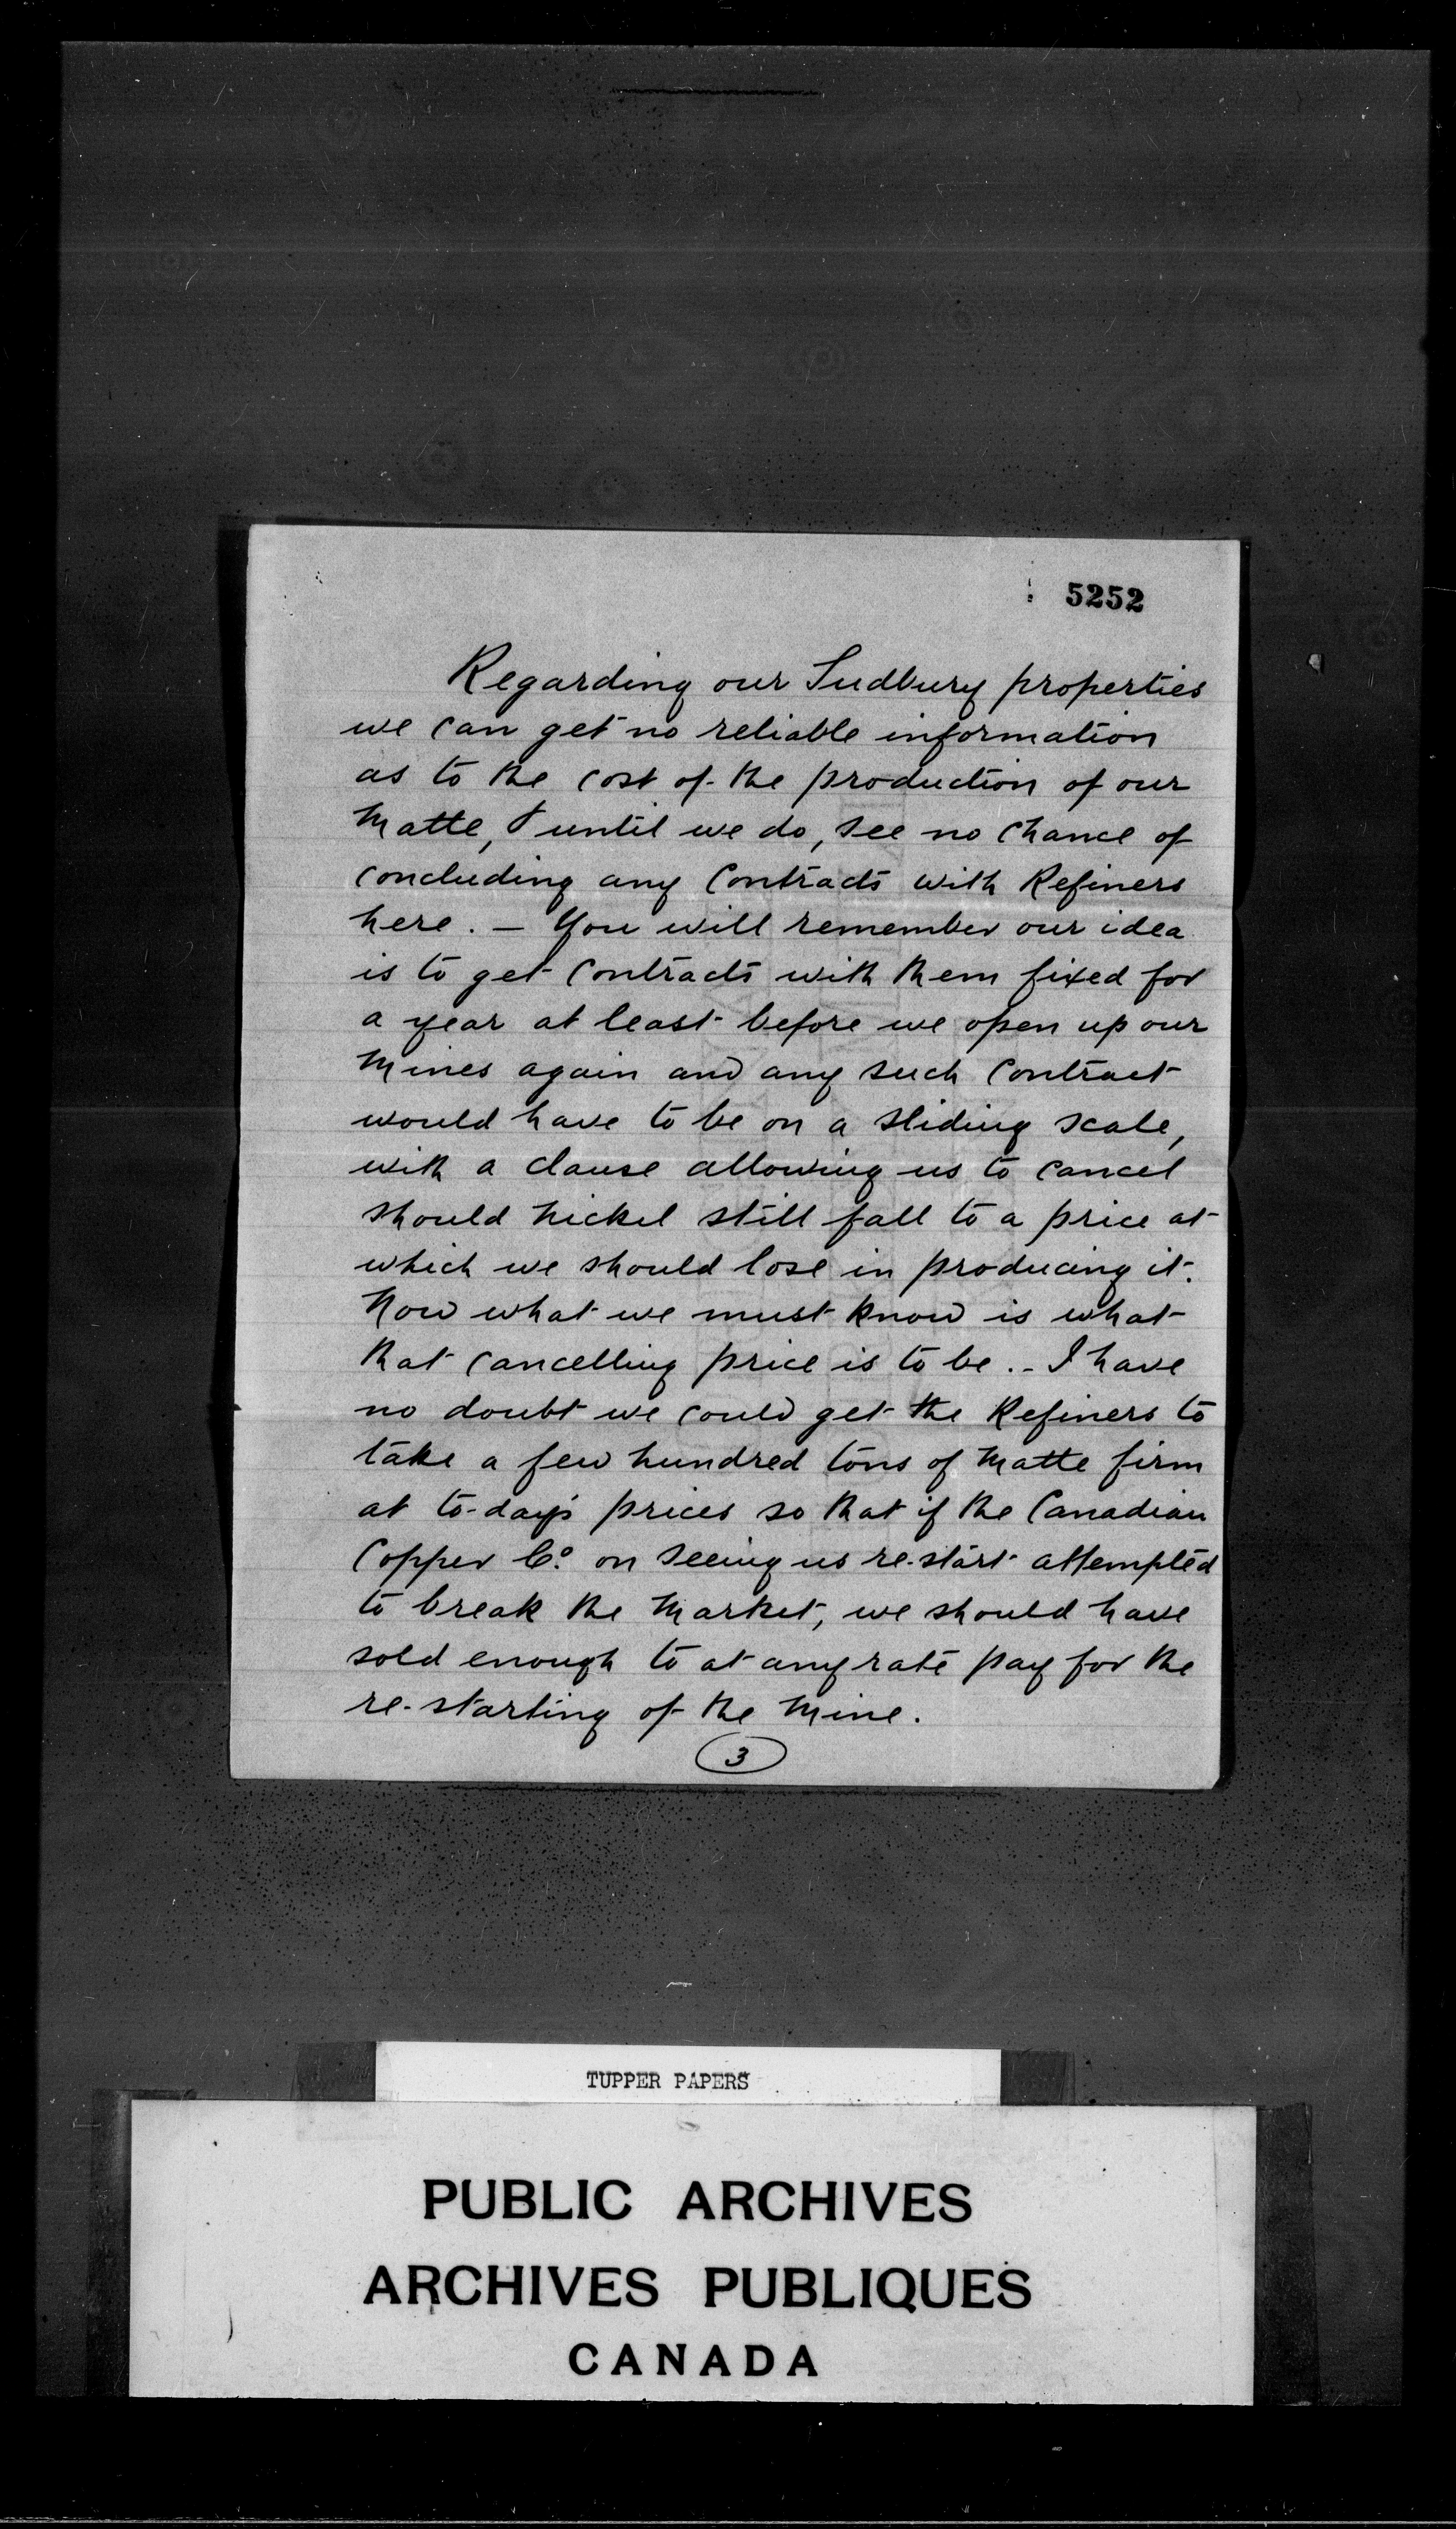 5252
Regarding our Sudbury properties
we can get no reliable information
as to the cost of the production of our
Matte, & until we do, see no chance of
concluding any Contracts with Refiners
here. — You will remember our idea
is to get Contracts with them fixed for
a year at least before we open up our
Mines again and any such Contract
would have to be on a sliding scale,
with a clause allowing us to cancel
should Nickel still fall to a price at
which we should lose in producing it.
Now what we must know is what
that cancelling price is to be. - I have
no doubt we could get the Refiners to
take a few hundred tons of Matte firm
at to-day's prices so that if the Canadian
Copper Co. on seeing us re-start attempted
to break the Market, we should have
sold enough to at any rate pay for the
re-starting of the Mine.
3
TUPPER PAPERS
PUBLIC ARCHIVES
ARCHIVES PUBLIQUES
CANADA